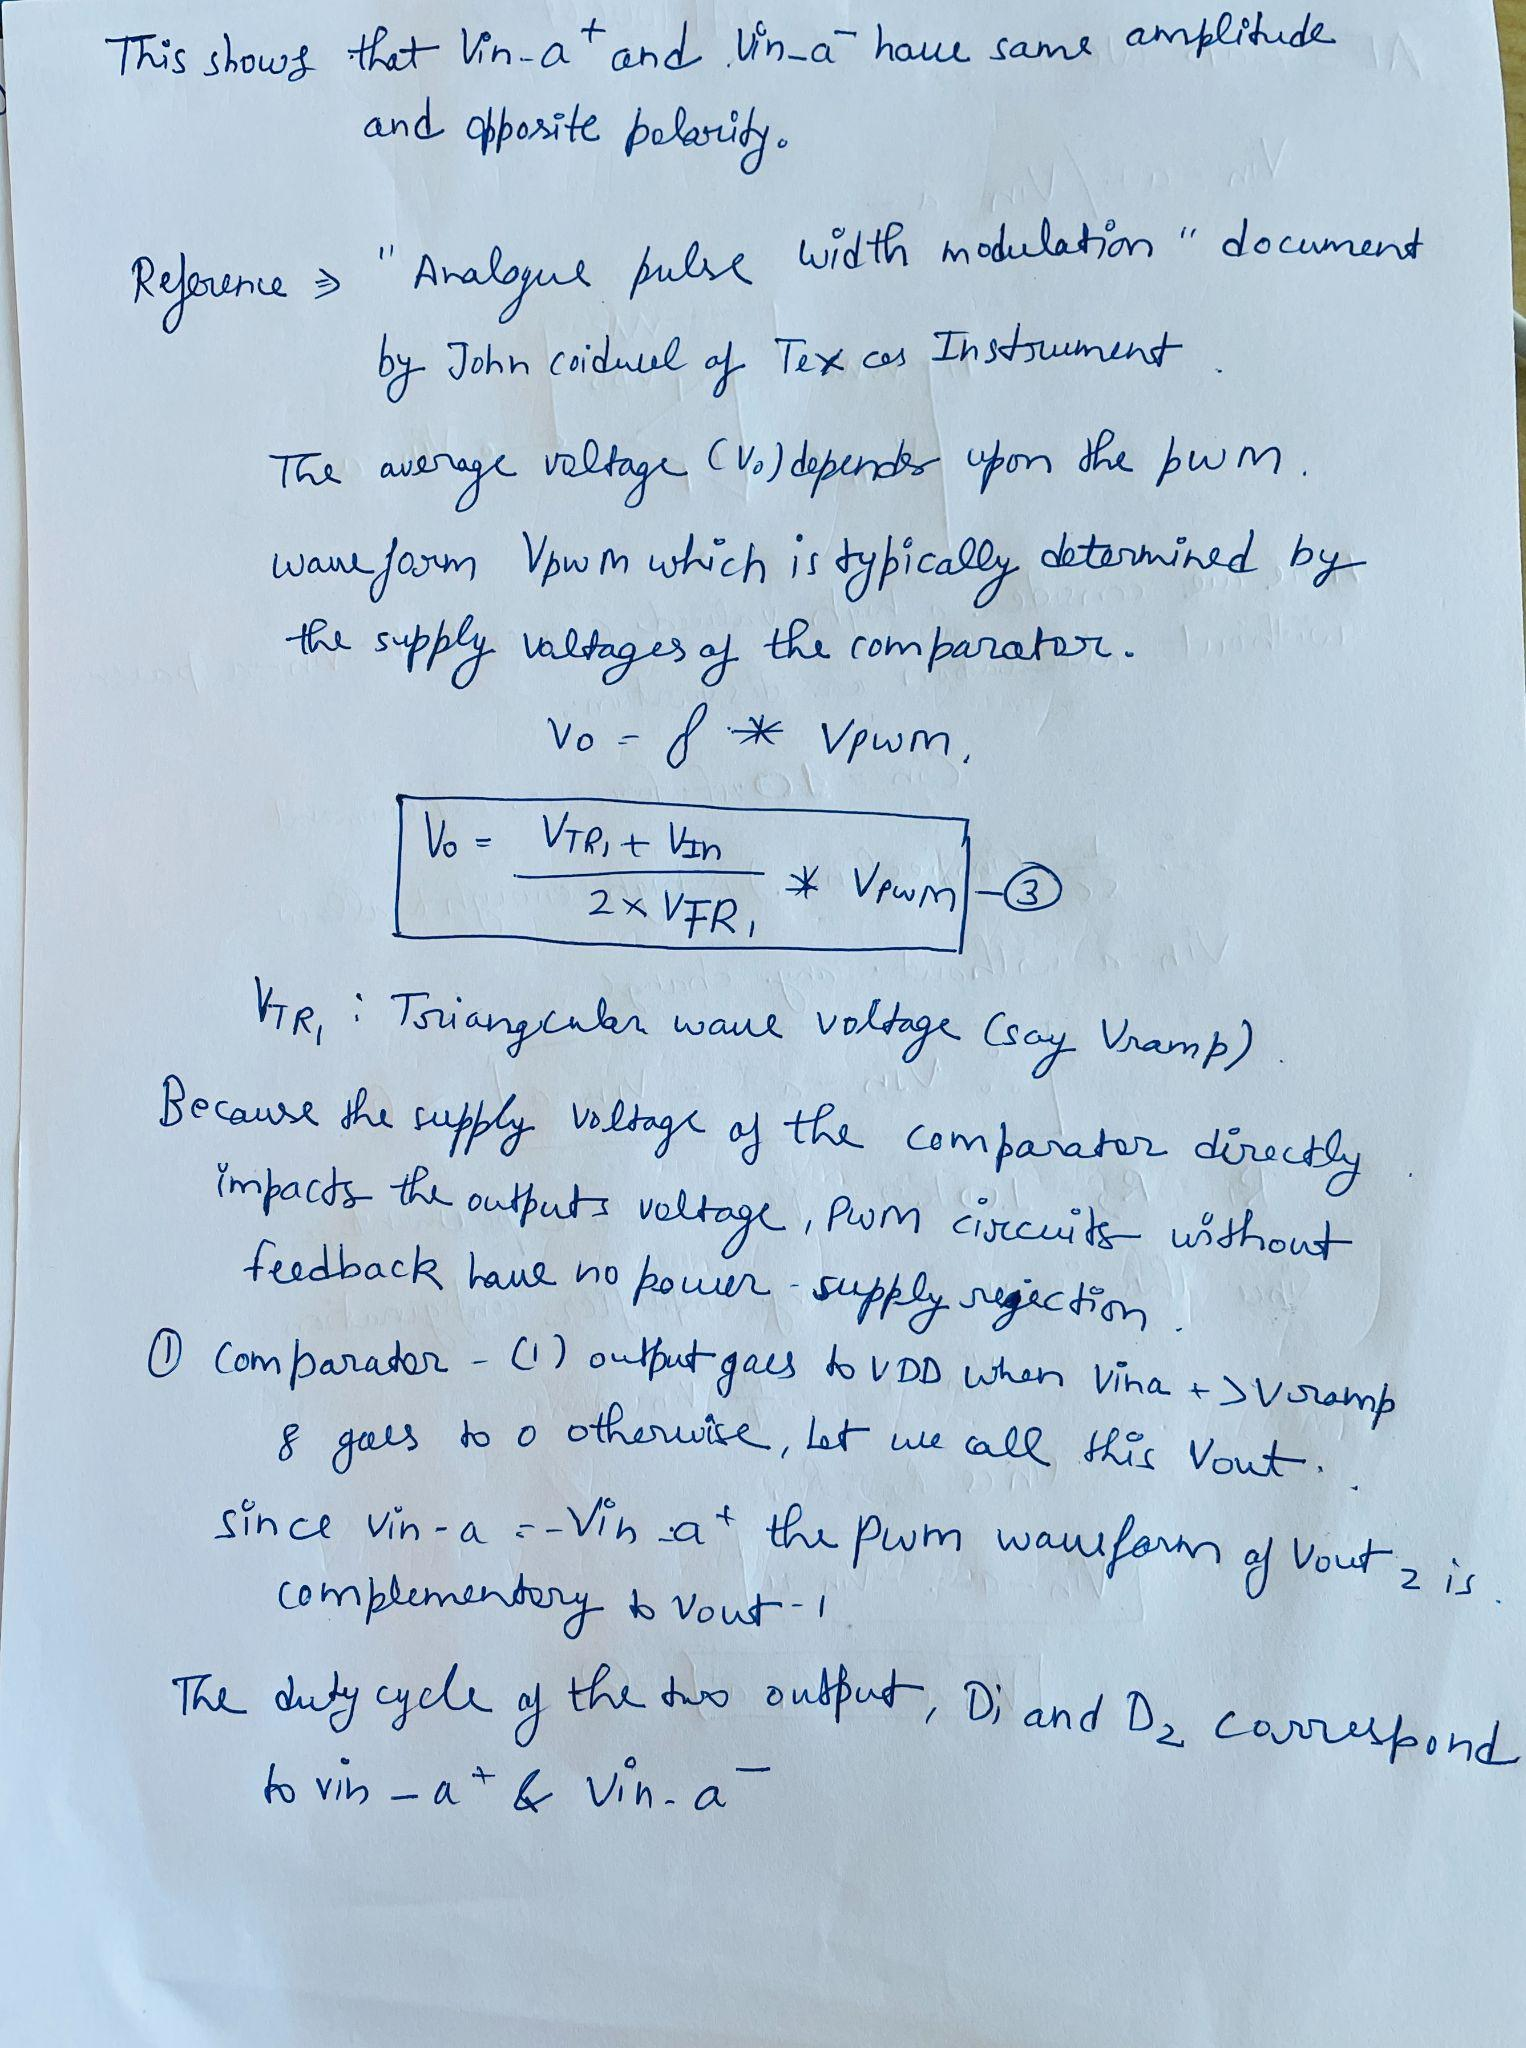 This shows that Vin-a⁺ and Vin-a⁻ have same amplitude
and opposite polarity.
Reference ⇒ "Analogue pulse width modulation" document
by John coidwel of Texas Instrument
The average voltage (Vo) depends upon the pwm.
wave form Vpwm which is typically determined by
the supply voltages of the comparator.
Vo = f * Vpwm.
Vo = (VTRI + VIn) / (2 × VTRI) * Vpwm - ③
VTRI : Triangular wave voltage (say Vramp).
Because the supply voltage of the comparator directly
impacts the outputs voltage, PWM circuits without
feedback have no power-supply rejection.
① Comparator - (1) output goes to VDD when vina + > Vramp
& goes to 0 otherwise, Let we call this Vout.
since vin-a = -Vin-a⁺ the pwm waveform of Vout 2 is.
complementory to Vout-1
The duty cycle of the two output, D₁ and D₂ correspond
to vin-a⁺ & Vin-a⁻